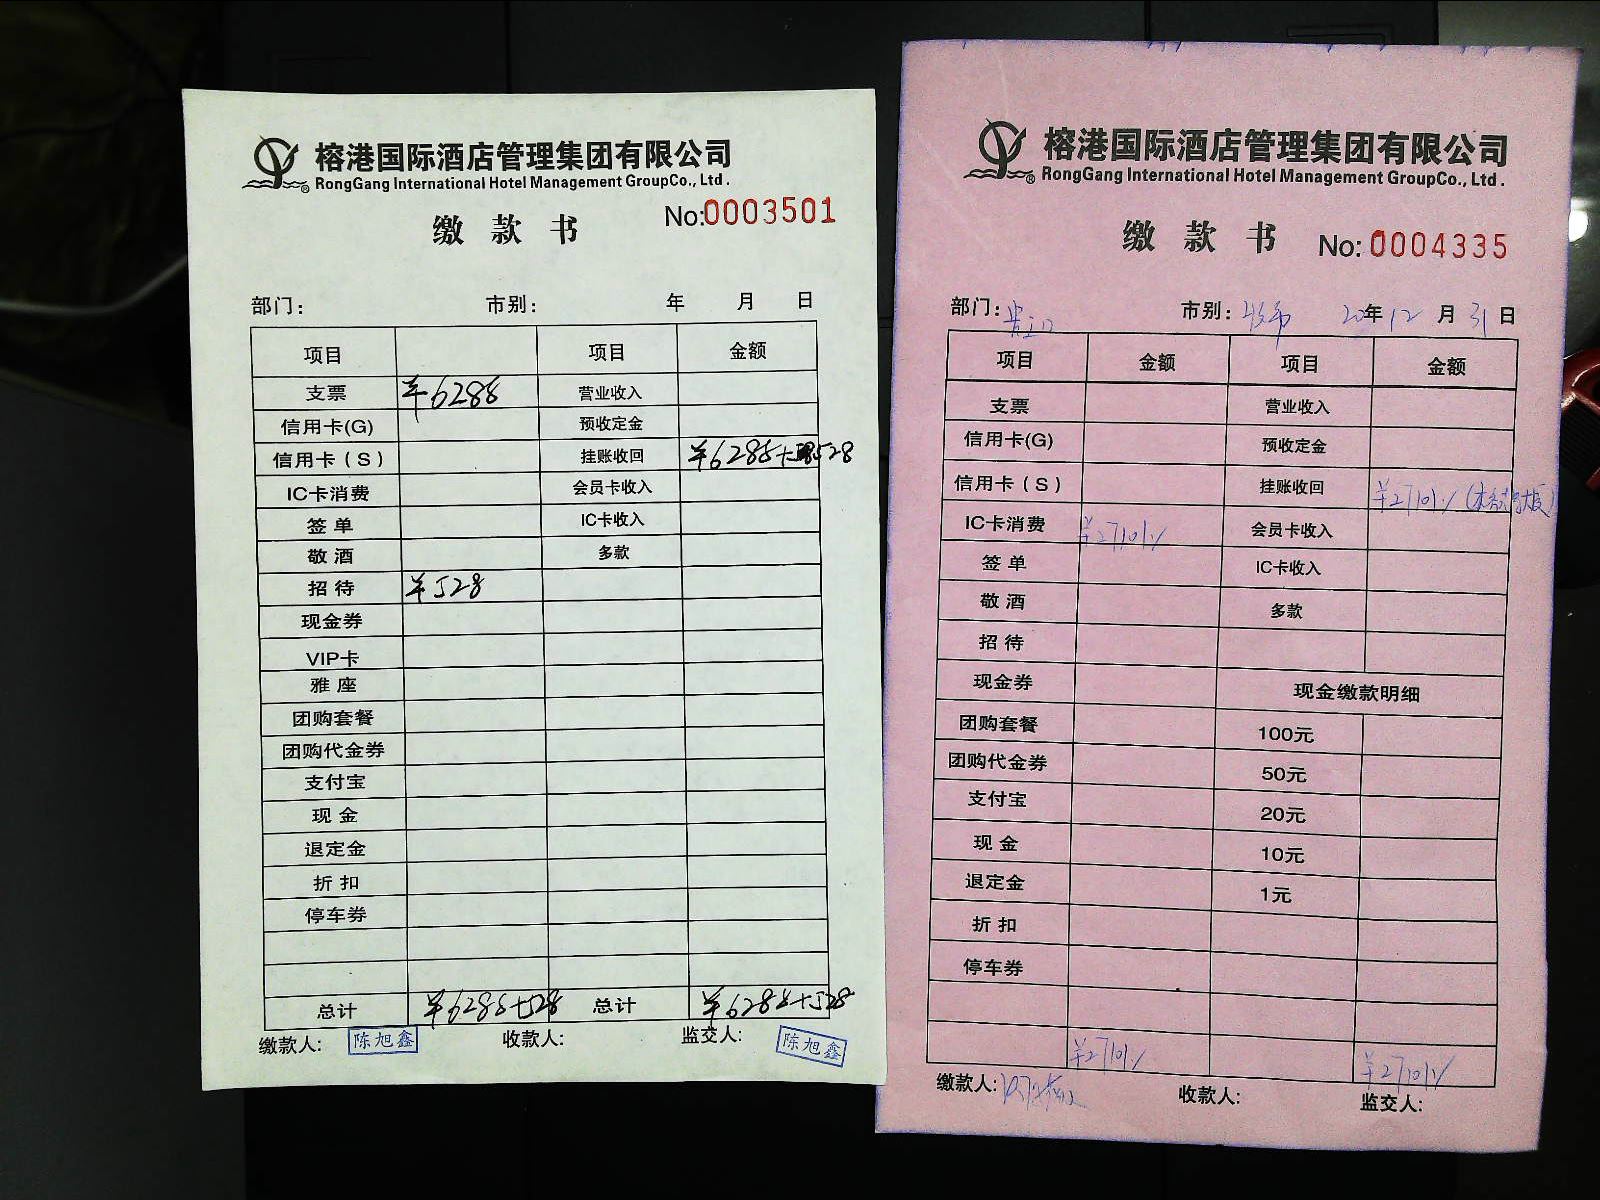 榕港国际酒店管理集团有限公司
RongGang International Hotel Management GroupCo., Ltd.
缴款书 No:0003501
部门: 市别: 年 月 日
项目 项目 金额
支票 ¥6288 营业收入
信用卡(G) 预收定金
信用卡(S) 挂账收回 ¥6288+528
IC卡消费 会员卡收入
签单 IC卡收入
敬酒 多款
招待 ¥528
现金券
VIP卡
雅座
团购套餐
团购代金券
支付宝
现金
退定金
折扣
停车券
总计 ¥6288+528 总计 ¥6288+528
缴款人: 陈旭鑫 收款人: 监交人: 陈旭鑫
榕港国际酒店管理集团有限公司
RongGang International Hotel Management GroupCo., Ltd.
缴款书 No:0004335
部门: 市别: 20年12月31日
项目 金额 项目 金额
支票 营业收入
信用卡(G) 预收定金
信用卡(S) 挂账收回
IC卡消费 会员卡收入
签单 IC卡收入
敬酒 多款
招待
现金券 现金缴款明细
团购套餐 100元
团购代金券 50元
支付宝 20元
现金 10元
退定金 1元
折扣
停车券
缴款人: 收款人: 监交人: